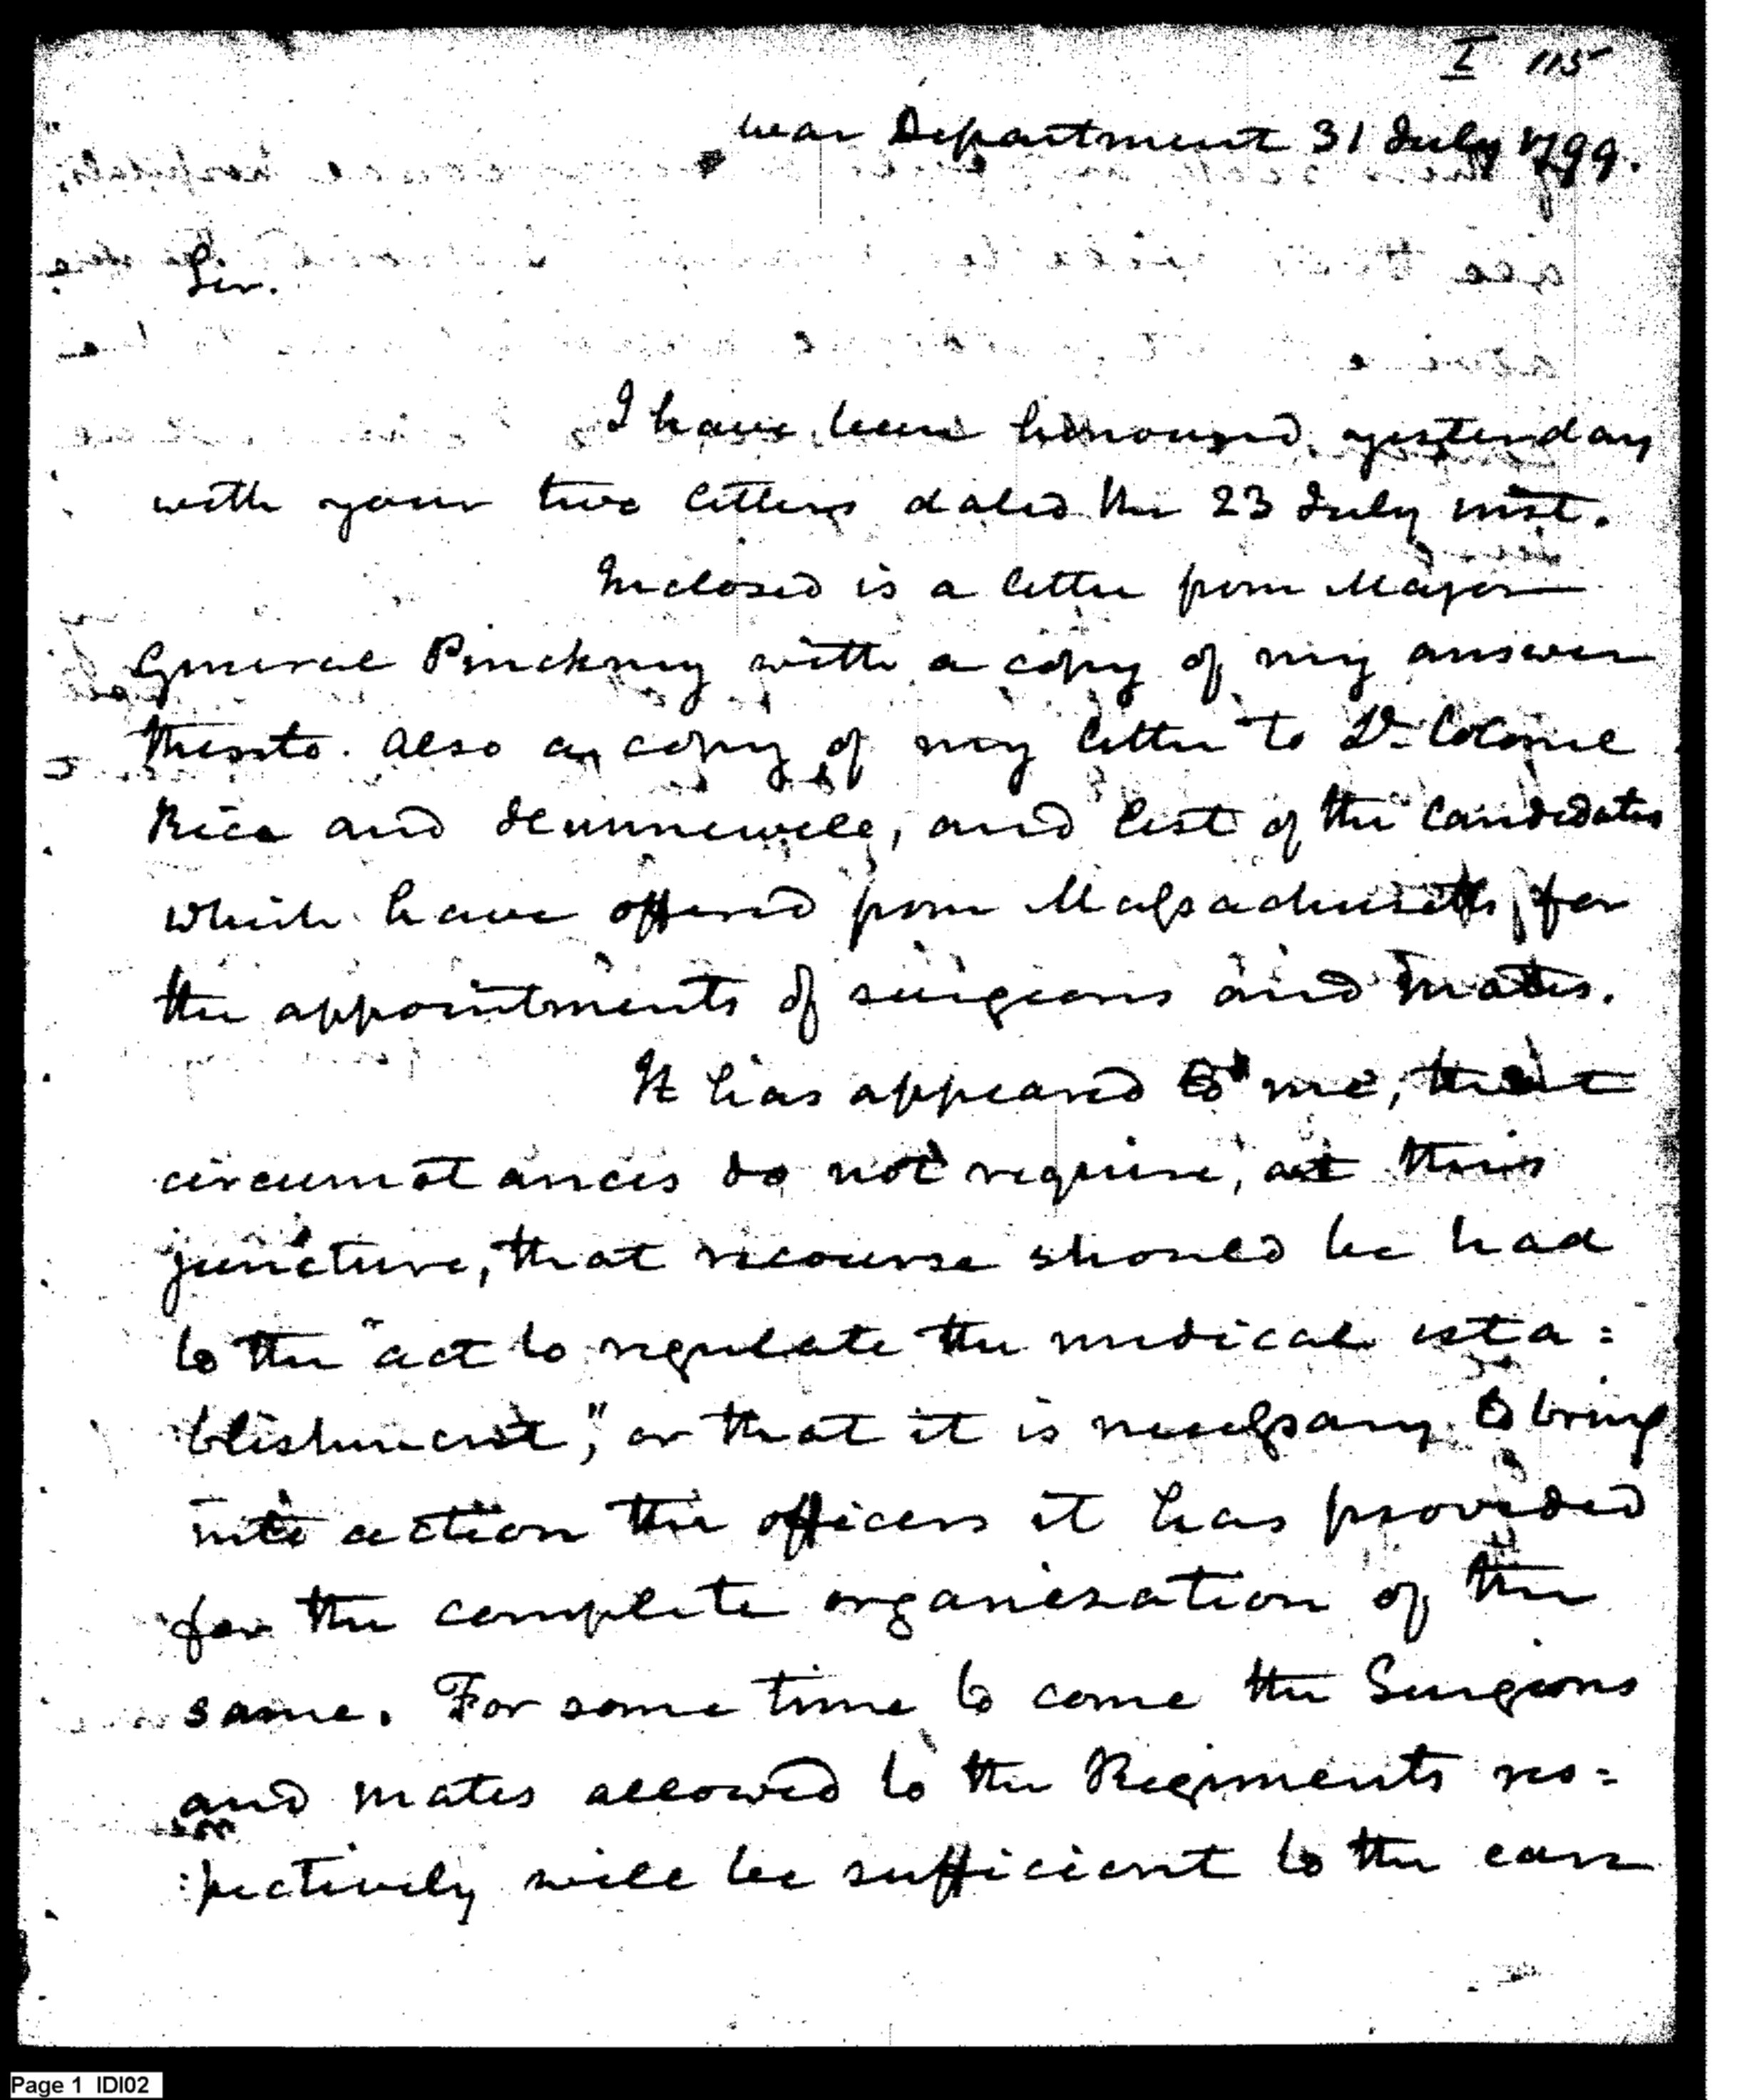 I 115
War Department 31 July 1799.
Sir.
I have been honoured yesterday
with your two letters dated the 23 July inst.
Inclosed is a letter from Major
General Pinckney with a copy of my answer
thereto. Also a copy of my letter to Lt. Colonel
Rice and Hunnewell, and list of the Candidates
which have offered from Massachusetts for
the appointments of surgeons and mates.
It has appeared to me, that
circumstances do not require, at this
juncture, that recourse should be had
to the "act to regulate the medical esta=
blishment," or that it is necessary to bring
into action the officers it has provided
for the complete organization of the
same. For some time to come the Surgeons
and mates allowed to the Regiments res=
:pectively will be sufficient to the care
Page 1 IDI02